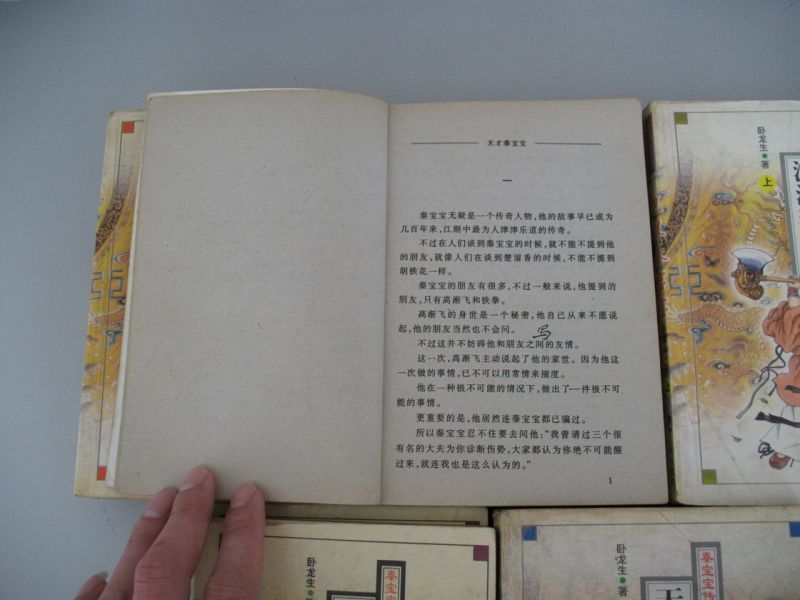 天才秦宝宝
一
秦宝宝无疑是一个传奇人物，他的故事早已成为
几百年来，江期中最为人津津乐道的传奇。
不过在人们谈到秦宝宝的时候，就不能不提到他
的朋友，就像人们在谈到楚留香的时候，不能不提到
胡铁花一样。
秦宝宝的朋友有很多，不过一般来说，他提到的
朋友，只有高渐飞和铁拳。
高渐飞的身世是一个秘密，他自己从来不愿说
起，他的朋友当然也不会问。
不过这并不妨碍他和朋友之间的友情。
这一次，高渐飞主动说起了他的家世。因为他这
一次做的事情，已不可以用常情来揣度。
他在一种极不可能的情况下，做出了一件极不可
能的事情。
更重要的是，他居然连秦宝宝都已骗过。
所以秦宝宝忍不住要去问他：“我曾请过三个很
有名的大夫为你诊断伤势，大家都认为你绝不可能醒
过来，就连我也是这么认为的。”
1
卧龙生●著
上
卧龙生●
秦宝宝
卧龙生●著
秦宝宝传